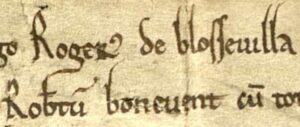 go Roger' de blosseuilla
Robtū boneuent cū tot